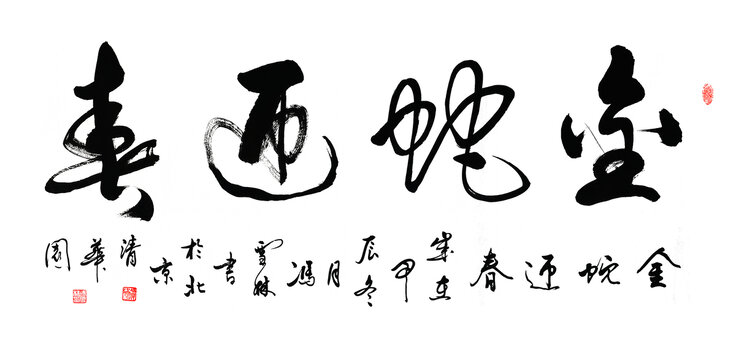 金蛇迎春
金蛇迎春歲在甲辰冬月馮雪林書於北京清華園